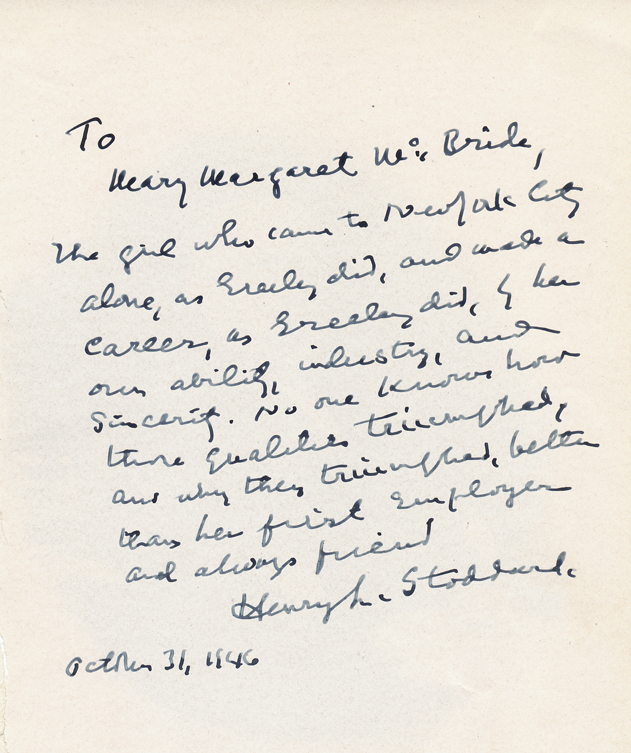 To
Mary Margaret Mc. Bride,
The girl who came to New York City
alone, as Greeley did, and made a
career, as Greeley did, by her
own ability, industry, and
sincerity. No one knows how
those qualities triumphed,
and why they triumphed, better
than her first employer
and always friend
Henry L. Stoddard.
October 31, 1946